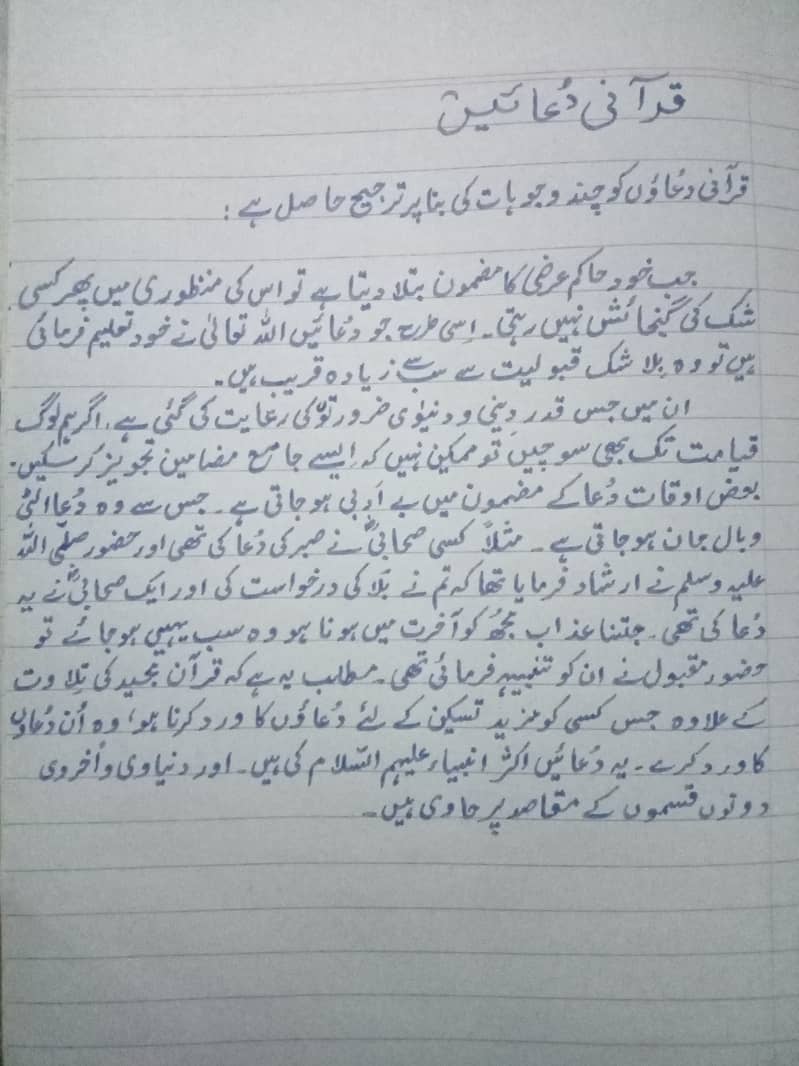 قرآنی دُعائیں
قرآنی دعُاؤں کو چند وجوہات کی بنا پر ترجیح حاصل ہے :
جب خود حاکم عرضی کا مضمون بتلا دیتا ہے تو اس کی منظوری میں پھر کسی
شک کی گنجائش نہیں رہتی۔ اِسی طرح جو دُعائیں اللہ تعالیٰ نے خود تعلیم فرمائی
ہیں تو وہ بِلا شک قبولیت سے سب سے زیادہ قریب ہیں۔
ان میں جس قدر دینی و دنیوی ضرورتوں کی رعایت کی گئی ہے، اگر ہم لوگ
قیامت تک بھی سوچیں تو ممکن نہیں کہ اِیسے جامع مضامین تجویز کر سکیں۔
بعض اوقات دُعا کے مضمون میں بے اَدبی ہو جاتی ہے۔ جس سے وہ دُعا الٹی
وبال جان ہو جاتی ہے۔ مثلاً کسی صحابیؓ نے صبر کی دُعا کی تھی اور حضور صلّی اللہ
علیہ وسلم نے ارشاد فرمایا تھا کہ تم نے بَلا کی درخواست کی اور ایک صحابیؓ نے یہ
دُعا کی تھی۔ جتنا عذاب مجھُ کو آخرت میں ہونا ہو وہ سب یہیں ہو جائے تو
حضور مقبول نے ان کو تنبیہہ فرمائی تھی۔ مطلب یہ ہے کہ قرآن مجید کی تِلاوت
کے علاوہ جس کسی کو مزید تسکین کے لئے دُعاؤں کا ورد کرنا ہو، وہ اُن دُعاؤں
کا ورد کرے۔ یہ دُعائیں اکثر انبیاء علیہم السّلام کی ہیں۔ اور دنیاوی و اُخروی
دونوں قسموں کے مقاصد پر حاوی ہیں۔